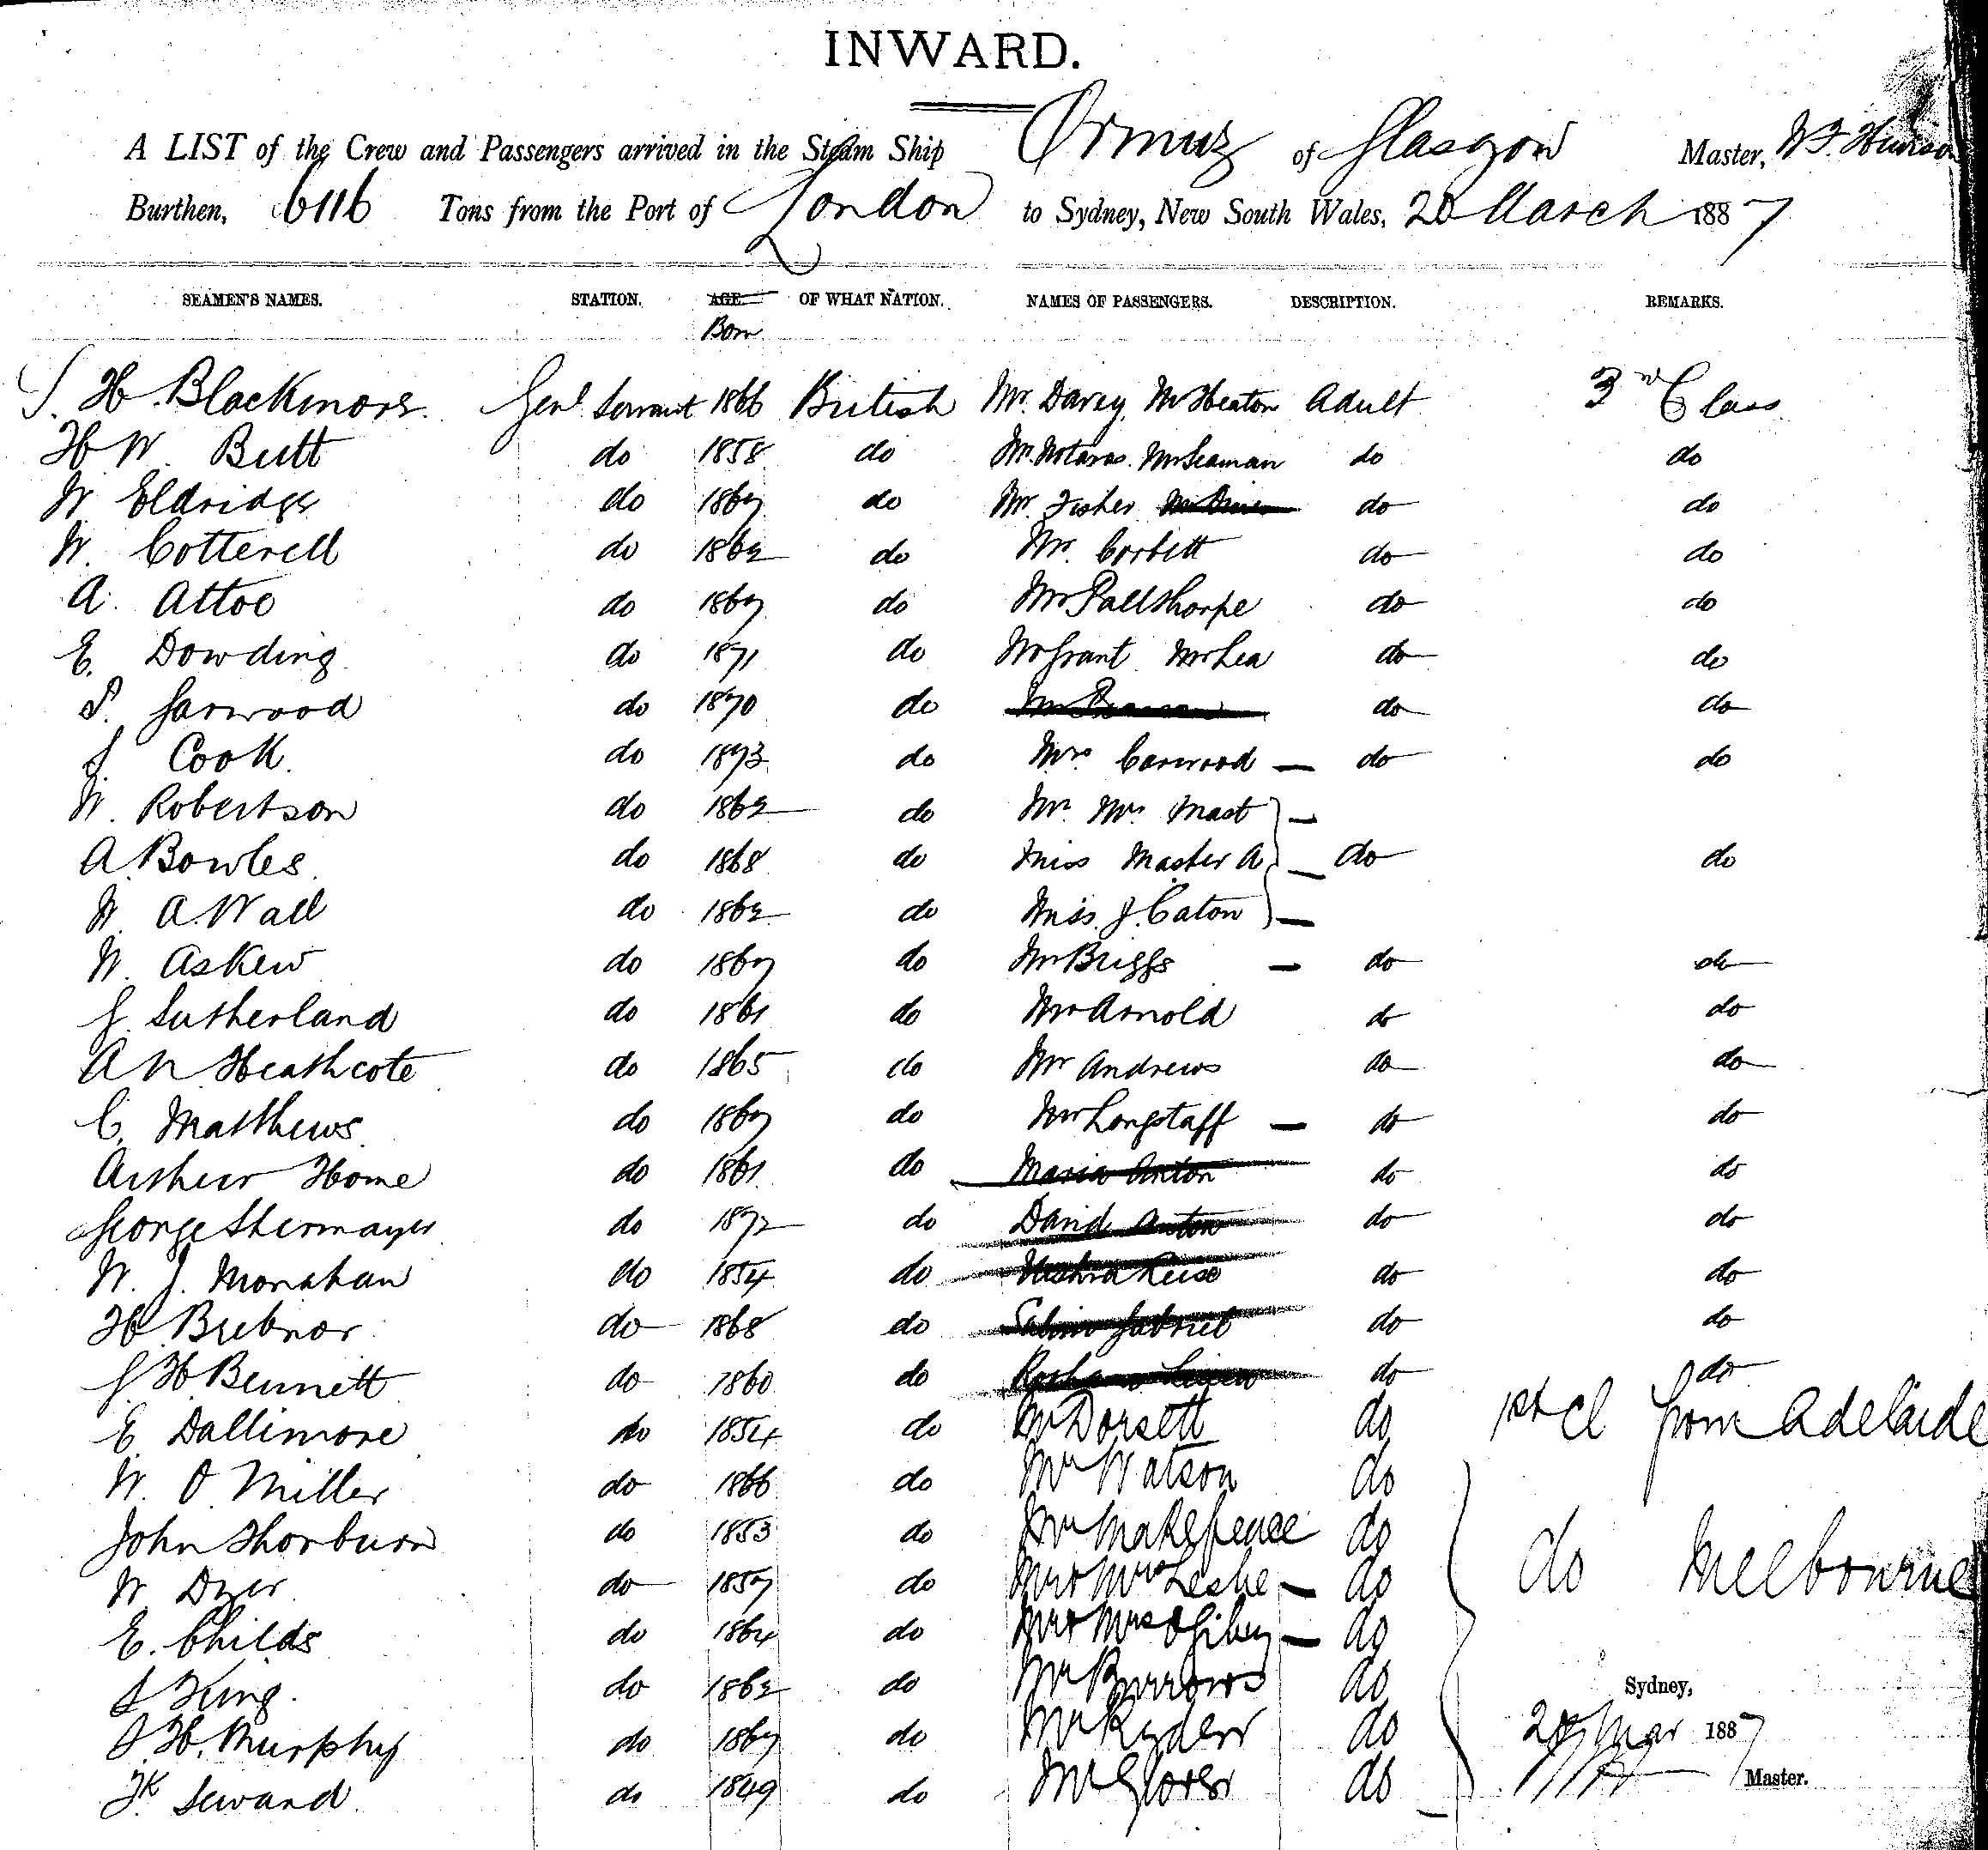 INWARD.
A LIST of the Crew and Passengers arrived in the Steam Ship Ormuz of Glasgow Master, W F.
Burthen, 6116 Tons from the Port of London to Sydney, New South Wales, 20 March 1887
SEAMEN'S NAMES. STATION. AGE. OF WHAT NATION. NAMES OF PASSENGERS. DESCRIPTION. REMARKS.
Born
J. H. Blackmore. Genl Servant 1866 British Mr. Davey Mr Heaton Adult 3rd Class
H W Butt do 1858 do Mr. Notaras. Mr Seaman do do
W Eldridge do 1867 do Mr. Fisher do do
W. Cotterell do 1862 do Mr. Corbett do do
A. Attoe do 1867 do Mr Pallthorpe do do
E. Dowding do 1871 do Mr Grant Mr Lea do do
P. Garwood do 1870 do do do
J. Cook. do 1873 do Mrs Carwood — do do
W. Robertson do 1862 do Mr. Mrs Mast —
A. Bowles. do 1868 do Miss Master A — do do
W. A. Wall do 1862 do Miss J. Caton —
W. Askew do 1867 do Mr Briggs — do do
J. Sutherland do 1861 do Mr Arnold do do
A N Heathcote do 1865 do Mr Andrews do do
C. Matthews. do 1867 do Mr Longstaff — do do
Arthur Home do 1861 do Maria Anton do do
George Shermayer do 1872 do David Anton do do
W. J. Monahan do 1854 do do do
H Brebnor do 1868 do Gabriel do do
J H Bennett do 1860 do do do
E. Dallimore do 1854 do Mr Dorsett do 1st Cl from Adelaide
W. O Miller do 1866 do Mr Watson do
John Thorburn do 1853 do Mr Makepeace do do Melbourne
W Dyer do 1857 do Mr & Mrs Leslie — do
E. Childs do 1864 do Mr & Mrs Ogilvy — do
J King. do 1862 do Mr Burrows do Sydney,
J. H. Murphy do 1867 do Mr Ryder do 20 Mar 1887
F. Seward do 1849 do Mr Glover do Master.